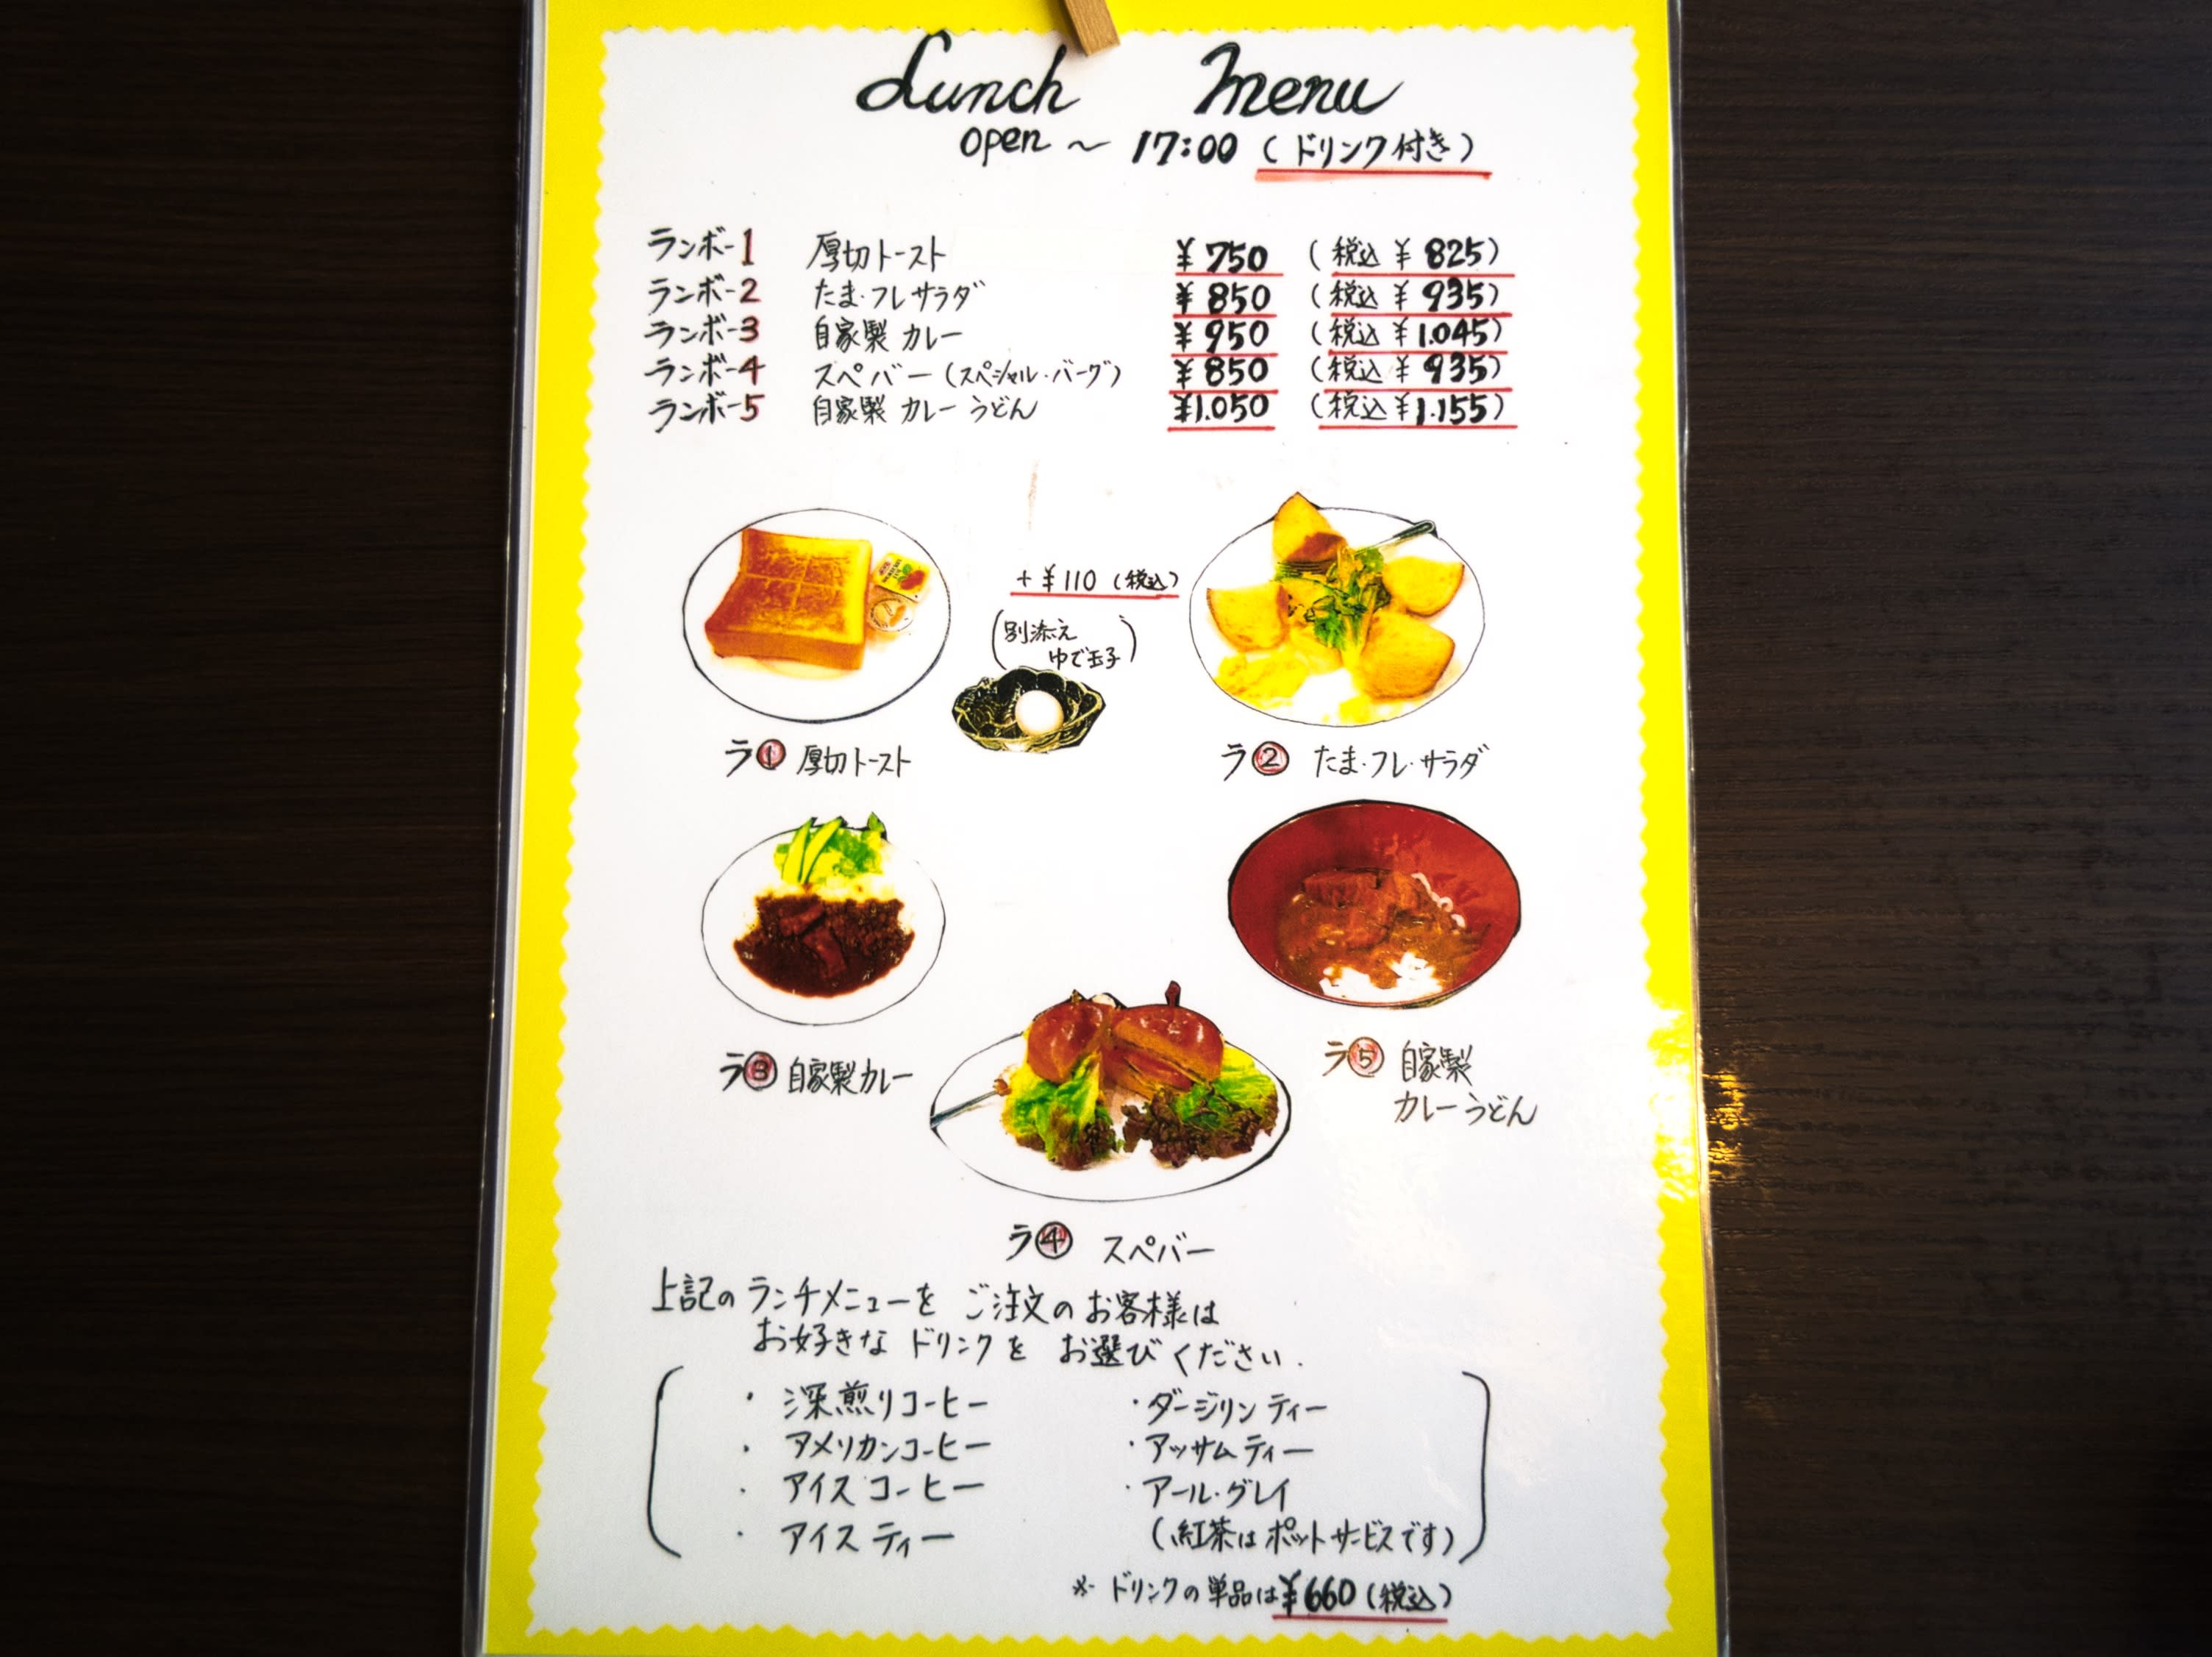 Lunch Menu
open ~ 17:00 (ドリンク付き)
ランボー1 厚切トースト ¥750 (税込 ¥825)
ランボー2 たま・フレサラダ ¥850 (税込 ¥935)
ランボー3 自家製 カレー ¥950 (税込 ¥1.045)
ランボー4 スペバー(スペシャル・バーグ) ¥850 (税込 ¥935)
ランボー5 自家製 カレー うどん ¥1.050 (税込 ¥1.155)
+¥110 (税込)
(別添え
ゆで玉子)
ラ① 厚切トースト
ラ② たま・フレ・サラダ
ラ③ 自家製カレー
ラ⑤ 自家製
カレーうどん
ラ④ スペバー
上記の ランチメニューを ご注文の お客様は
お好きな ドリンクを お選びください.
・深煎りコーヒー ・ダージリン ティー
・アメリカンコーヒー ・アッサム ティー
・アイス コーヒー ・アール・グレイ
・アイス ティー (紅茶は ポットサービスです)
※ ドリンクの 単品は¥660(税込)